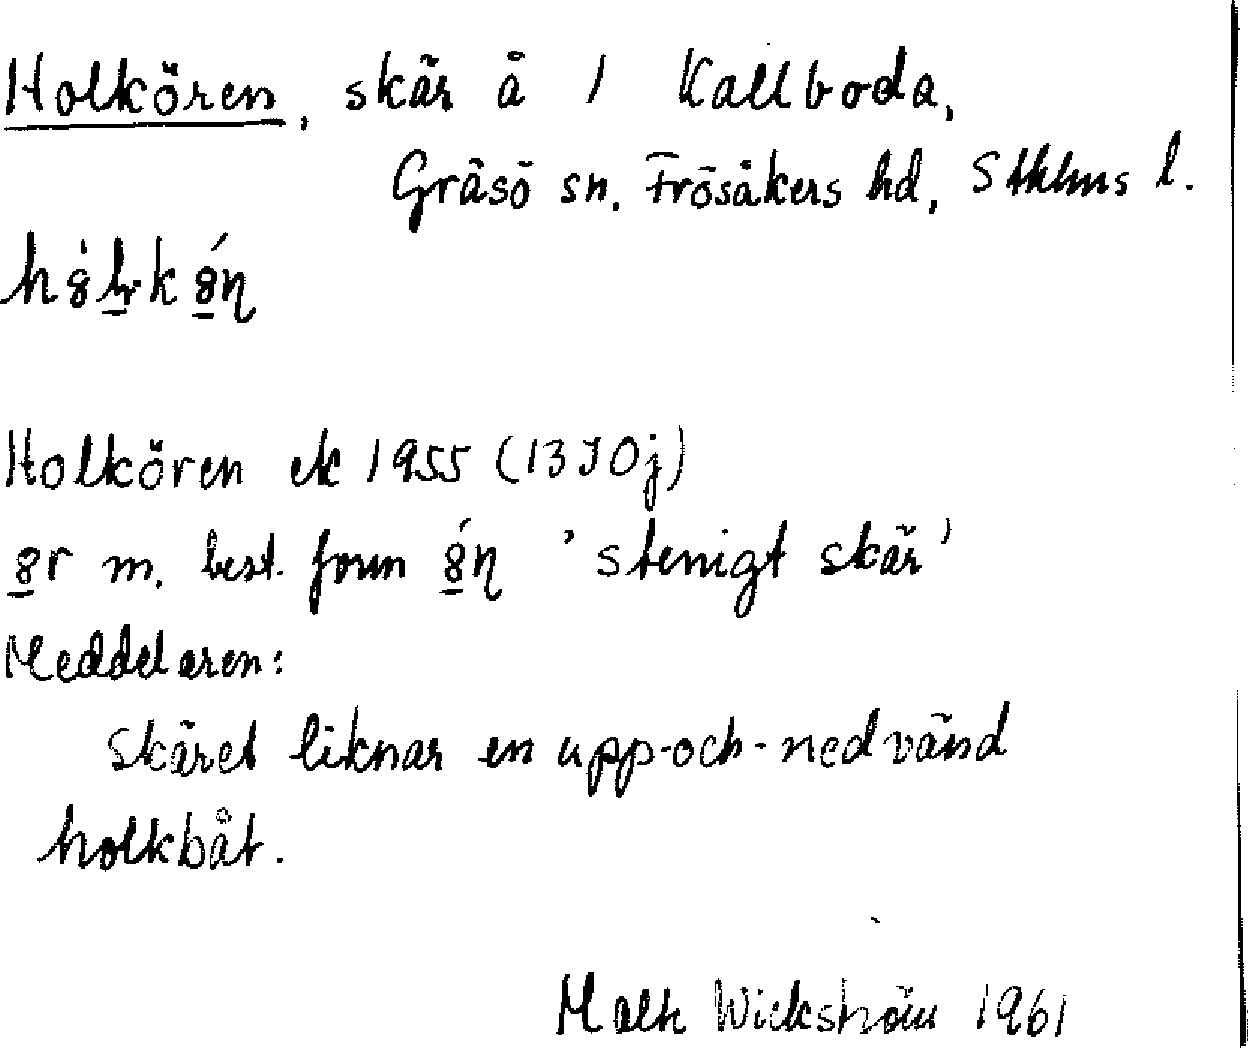 Holkören, skär å 1 Kallboda,
Gräsö sn, Frösåkers hd, Sthlms l.
Holkören ek 1955 (13I0j)
m. best. form 'stenigt skär'
Meddelaren:
Skäret liknar en upp-och-nedvänd
holkbåt.
Wickström 1961